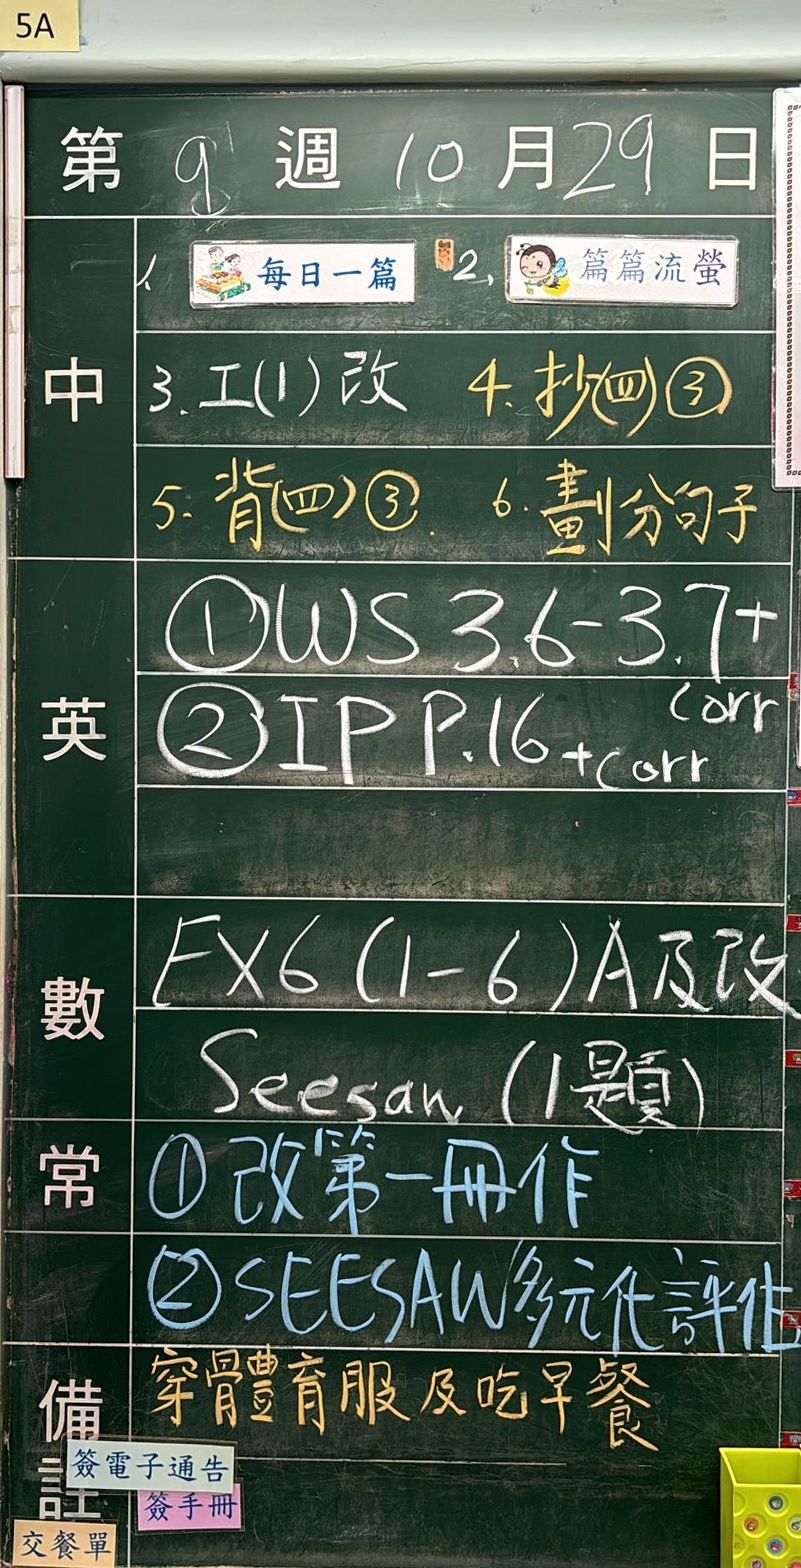 5A
第 9 週 10 月 29 日
中
1. 每日一篇 2. 篇篇流螢
3. 工(1) 改 4. 抄(四)③
5. 背(四)③ 6. 劃分句子
英
①WS 3.6-3.7+
corr
②IP P.16 +corr
數
EX6 (1-6)A及改
Seesaw (1題)
常
①改第一冊作
②SEESAW多元化評估
備註
穿體育服及吃早餐
簽電子通告
簽手冊
交餐單